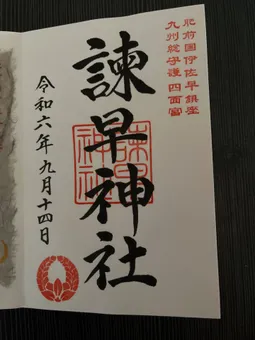 肥前國伊佐早鎮座
九州総守護四面宮
諫早神社
諫早神社
令和六年九月十四日